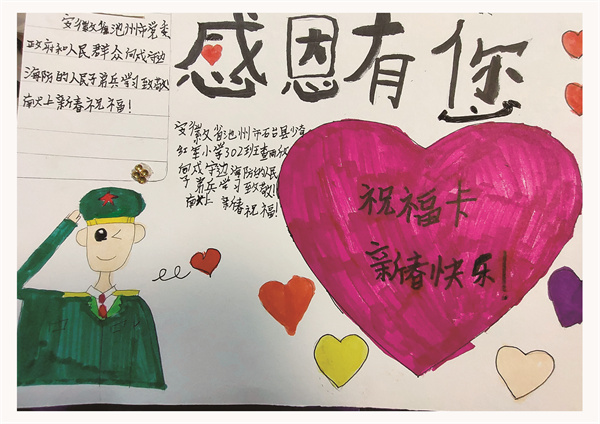 安徽省池州市党委
政府和人民群众向戍守边
海防的人民子弟兵学习致敬
献上新春祝福!
感恩有您
安徽省池州市石台县少奇
红军小学302班查雨
向戍守边海防的人民
子弟兵学习致敬!
献上新春祝福!
祝福卡
新春快乐!